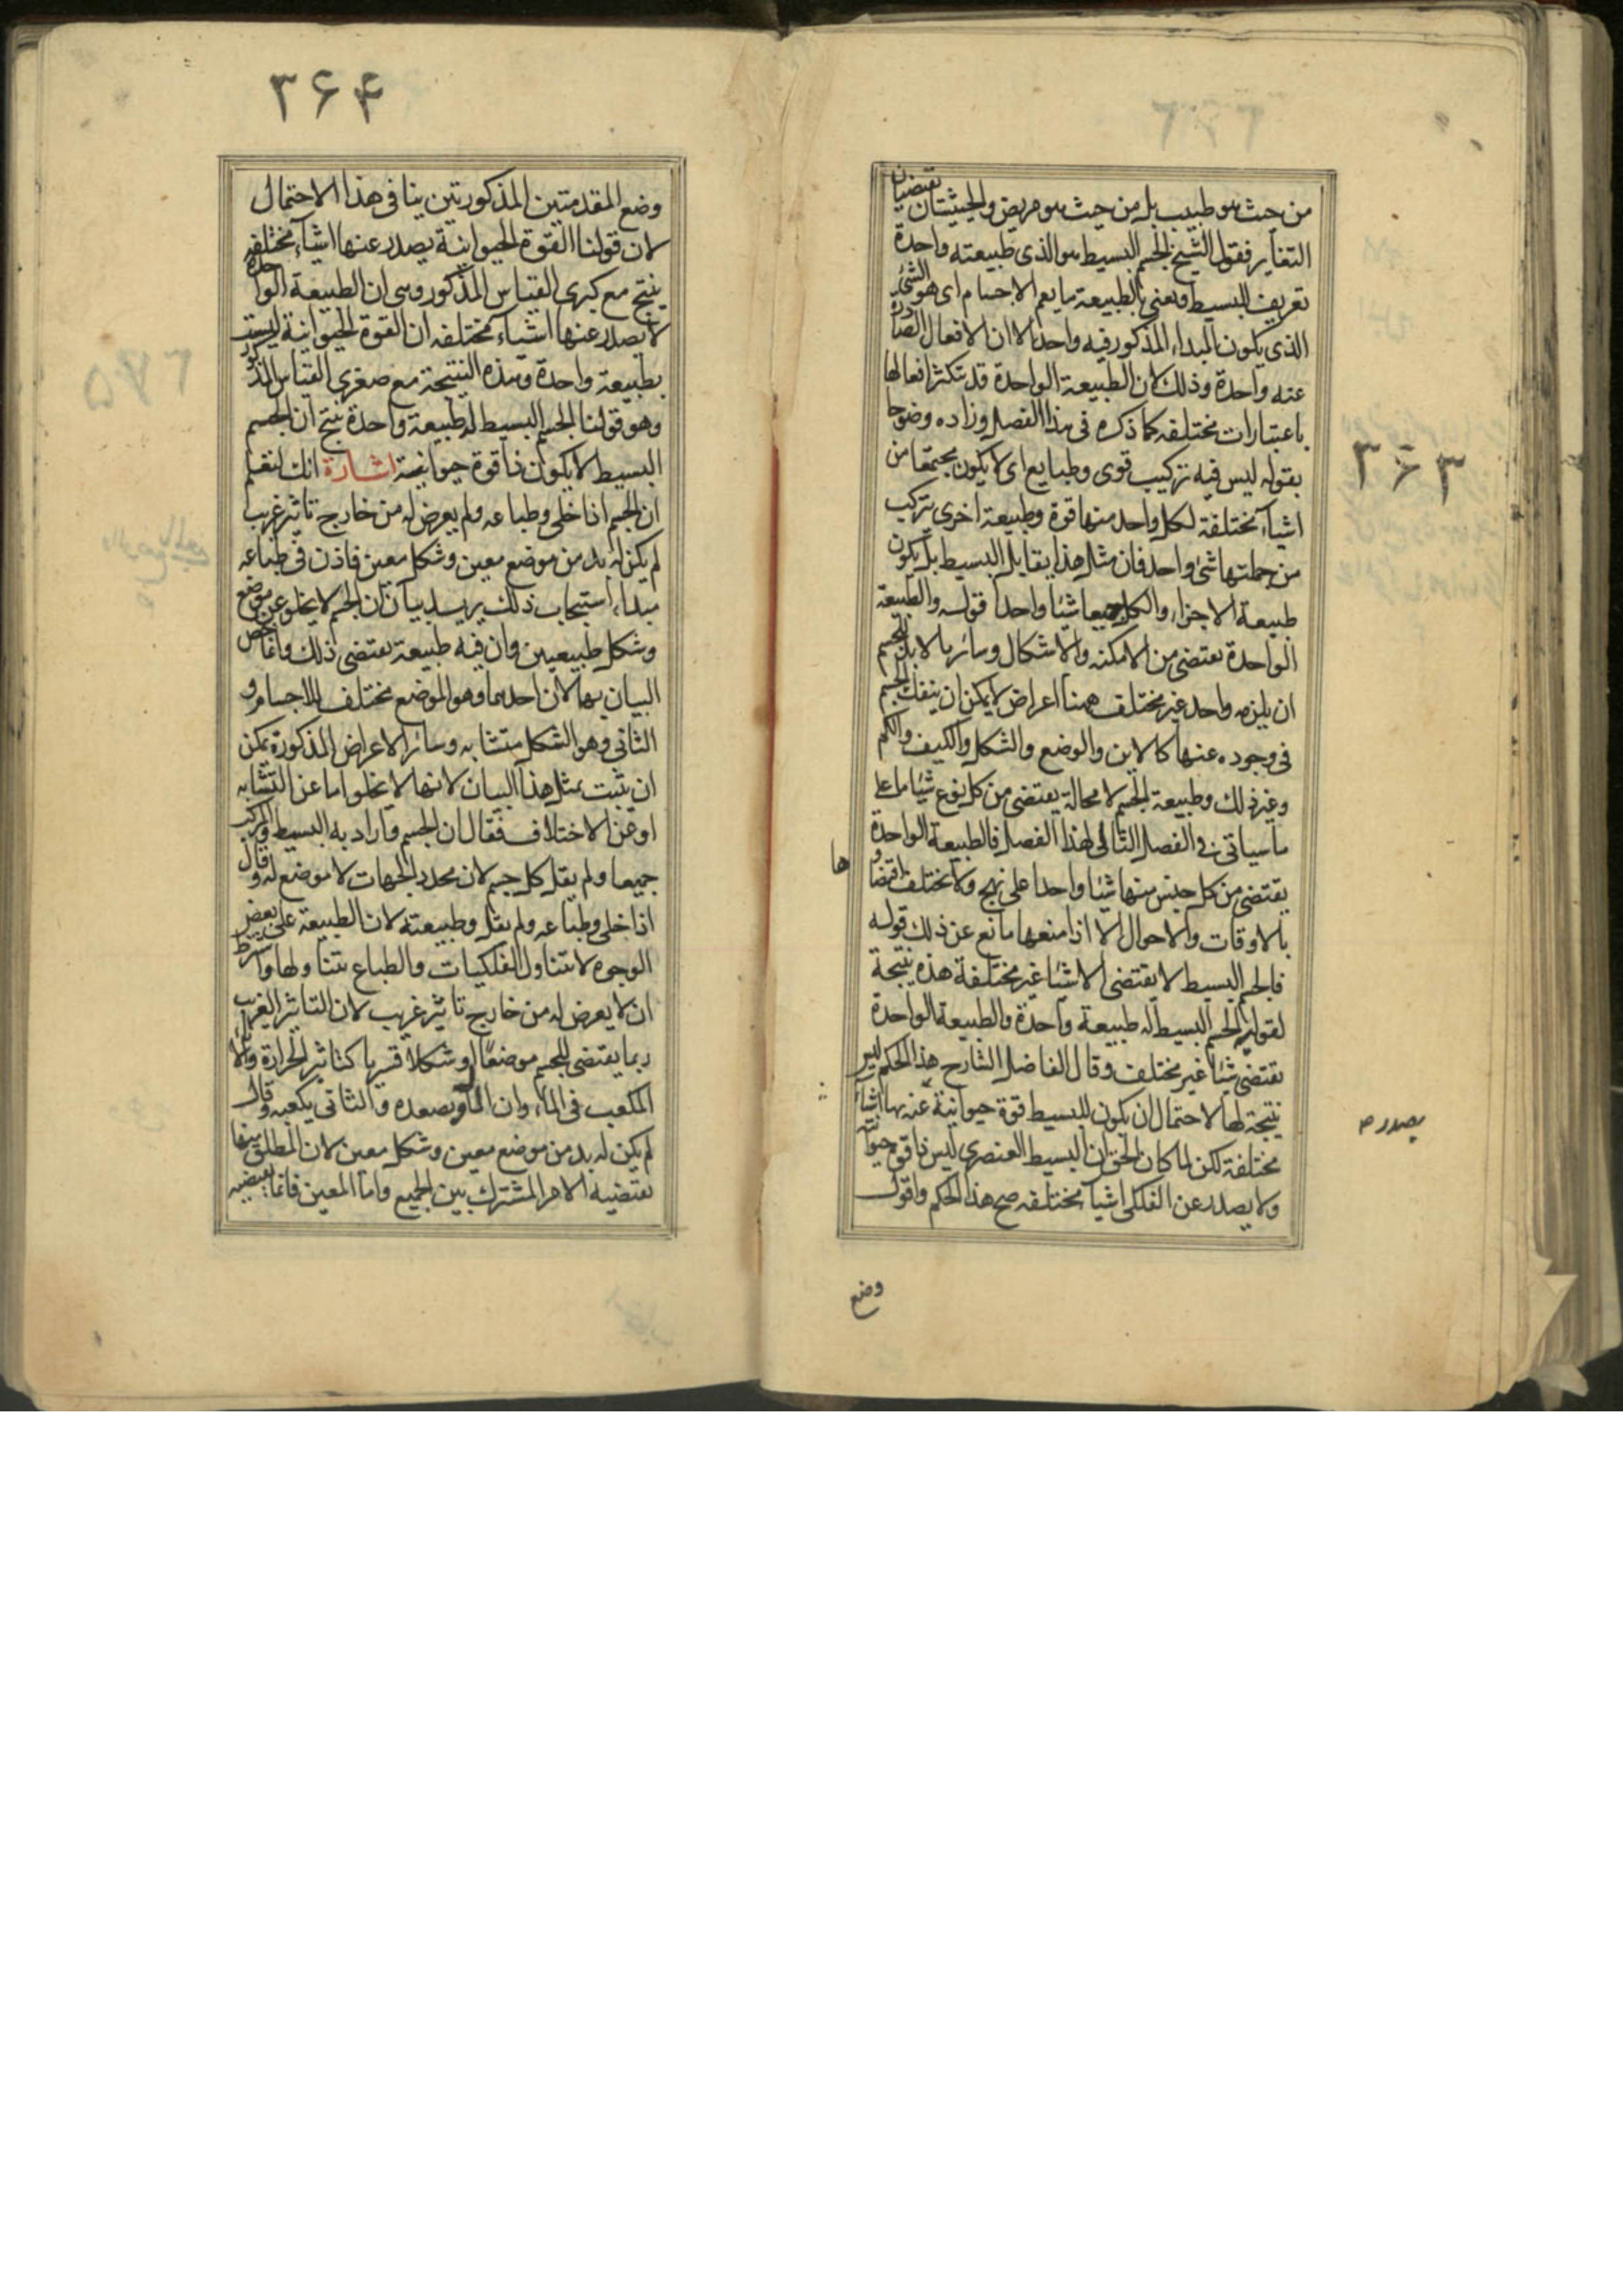 ۳۶۳
من حيث هو طبيب بل من حيث هو مريض والحيثيتان تقتضيان
التغاير فقول الشيخ الجسم البسيط هو الذى طبيعته واحدة
تعريف للبسيط ويعنى بالطبيعة ما يعم الاجسام اى هو الشىء
الذى يكون المبداء المذكور فيه واحدا لا ان الافعال الصادرة
عنه واحدة وذلك لان الطبيعة الواحدة قد تتكثر افعالها
باعتبارات مختلفه كما ذكره فى هذا الفصل وزاده وضوحا
بقوله ليس فيه تركيب قوى وطبايع اى لا يكون مجتمعا من
اشياء مختلفة لكل واحد منها قوة وطبيعة اخرى تركب
من جملتها شئ واحد فان مثل هذا يقابل البسيط بل يكون
طبيعة الاجزاء والكل جميعا شيئا واحدا قوله والطبيعة
الواحدة تقتضى من الامكنه والاشكال وسائر ما لابد للجسم
ان يلزمه واحد غير مختلف ههنا اعراض لا يمكن ان ينفك الجسم
فى وجوده عنها كالاين والوضع والشكل والكيف والكم
وغير ذلك وطبيعة الجسم لا محالة يقتضى من كل نوع شيئا ما على
ما سياتى فى الفصل التالى لهذا الفصل فالطبيعة الواحدة
يقتضى من كل جنس منها شيئا واحدا على نهج ولا يختلف اقتضاؤ
ها
بالاوقات والاحوال الا اذا منعها مانع عن ذلك قوله
فالجسم البسيط لا يقتضى الا شيئا غير مختلفة هذه نتيجة
لقوله الجسم البسيط له طبيعة واحدة والطبيعة الواحدة
تقتضى شيئا غير مختلف وقال الفاضل الشارح هذا الحكم ليس
نتيجة لها لاحتمال ان يكون للبسيط قوة حيوانية عنه بها اشياء
يصدر
مختلفة لكن لما كان الحق ان البسيط العنصرى ليس ذا قوة حيوانية
ولا يصدر عن الفلكى اشياء مختلفه صح هذا الحكم واقول
وضع
۳۶۴
وضع المقدمتين المذكورتين ينافى هذا الاحتمال
لان قولنا القوة الحيوانية يصدر عنها اشياء مختلفه
ينتج مع كبرى القياس المذكور وهى ان الطبيعة الواحدة
لا يصدر عنها اشياء مختلفه ان القوة الحيوانية ليست
بطبيعة واحدة وهذه النتيجة مع صغرى القياس المذكور
وهو قولنا الجسم البسيط له طبيعة واحدة ينتج ان الجسم
البسيط لا يكون ذا قوة حيوانية اشارة انك لتعلم
ان الجسم اذا خلى وطباعه ولم يعرض له من خارج تاثير غريب
لم يكن له بد من موضع معين وشكل معين فاذن فى طباعه
مبداء استيجاب ذلك يريد بيان ان الجسم لا يخلو عن موضع
وشكل طبيعيين وان فيه طبيعة تقتضى ذلك وانما خص
البيان بهما لان احدهما وهو الموضع مختلف للاجسام و
الثانى وهو الشكل متشابه وسائر الاعراض المذكورة يمكن
ان يثبت بمثل هذا البيان لانها لا تخلو اما عن التشابه
او عن الاختلاف فقال ان الجسم واراد به البسيط والمركب
جميعا ولم يقل كل جسم لان محدد الجهات لا موضع له وقال
اذا خلى وطباعه ولم يقل وطبيعته لان الطبيعة على بعض
الوجوه لا تتناول الفلكيات والطباع يتناولها واشترط
ان لا يعرض له من خارج تاثير غريب لان التاثير الغريب
ربما يقتضى للجسم موضعا او شكلا قسريا كتاثير الحرارة والاناء
المكعب فى الماء وان الاول يصعده والثانى يكعبه وقال
لم يكن له بد من موضع معين وشكل معين لان المطلق منهما
تقتضيه الامر المشترك بين الجميع واما المعين فانما يقتضيه